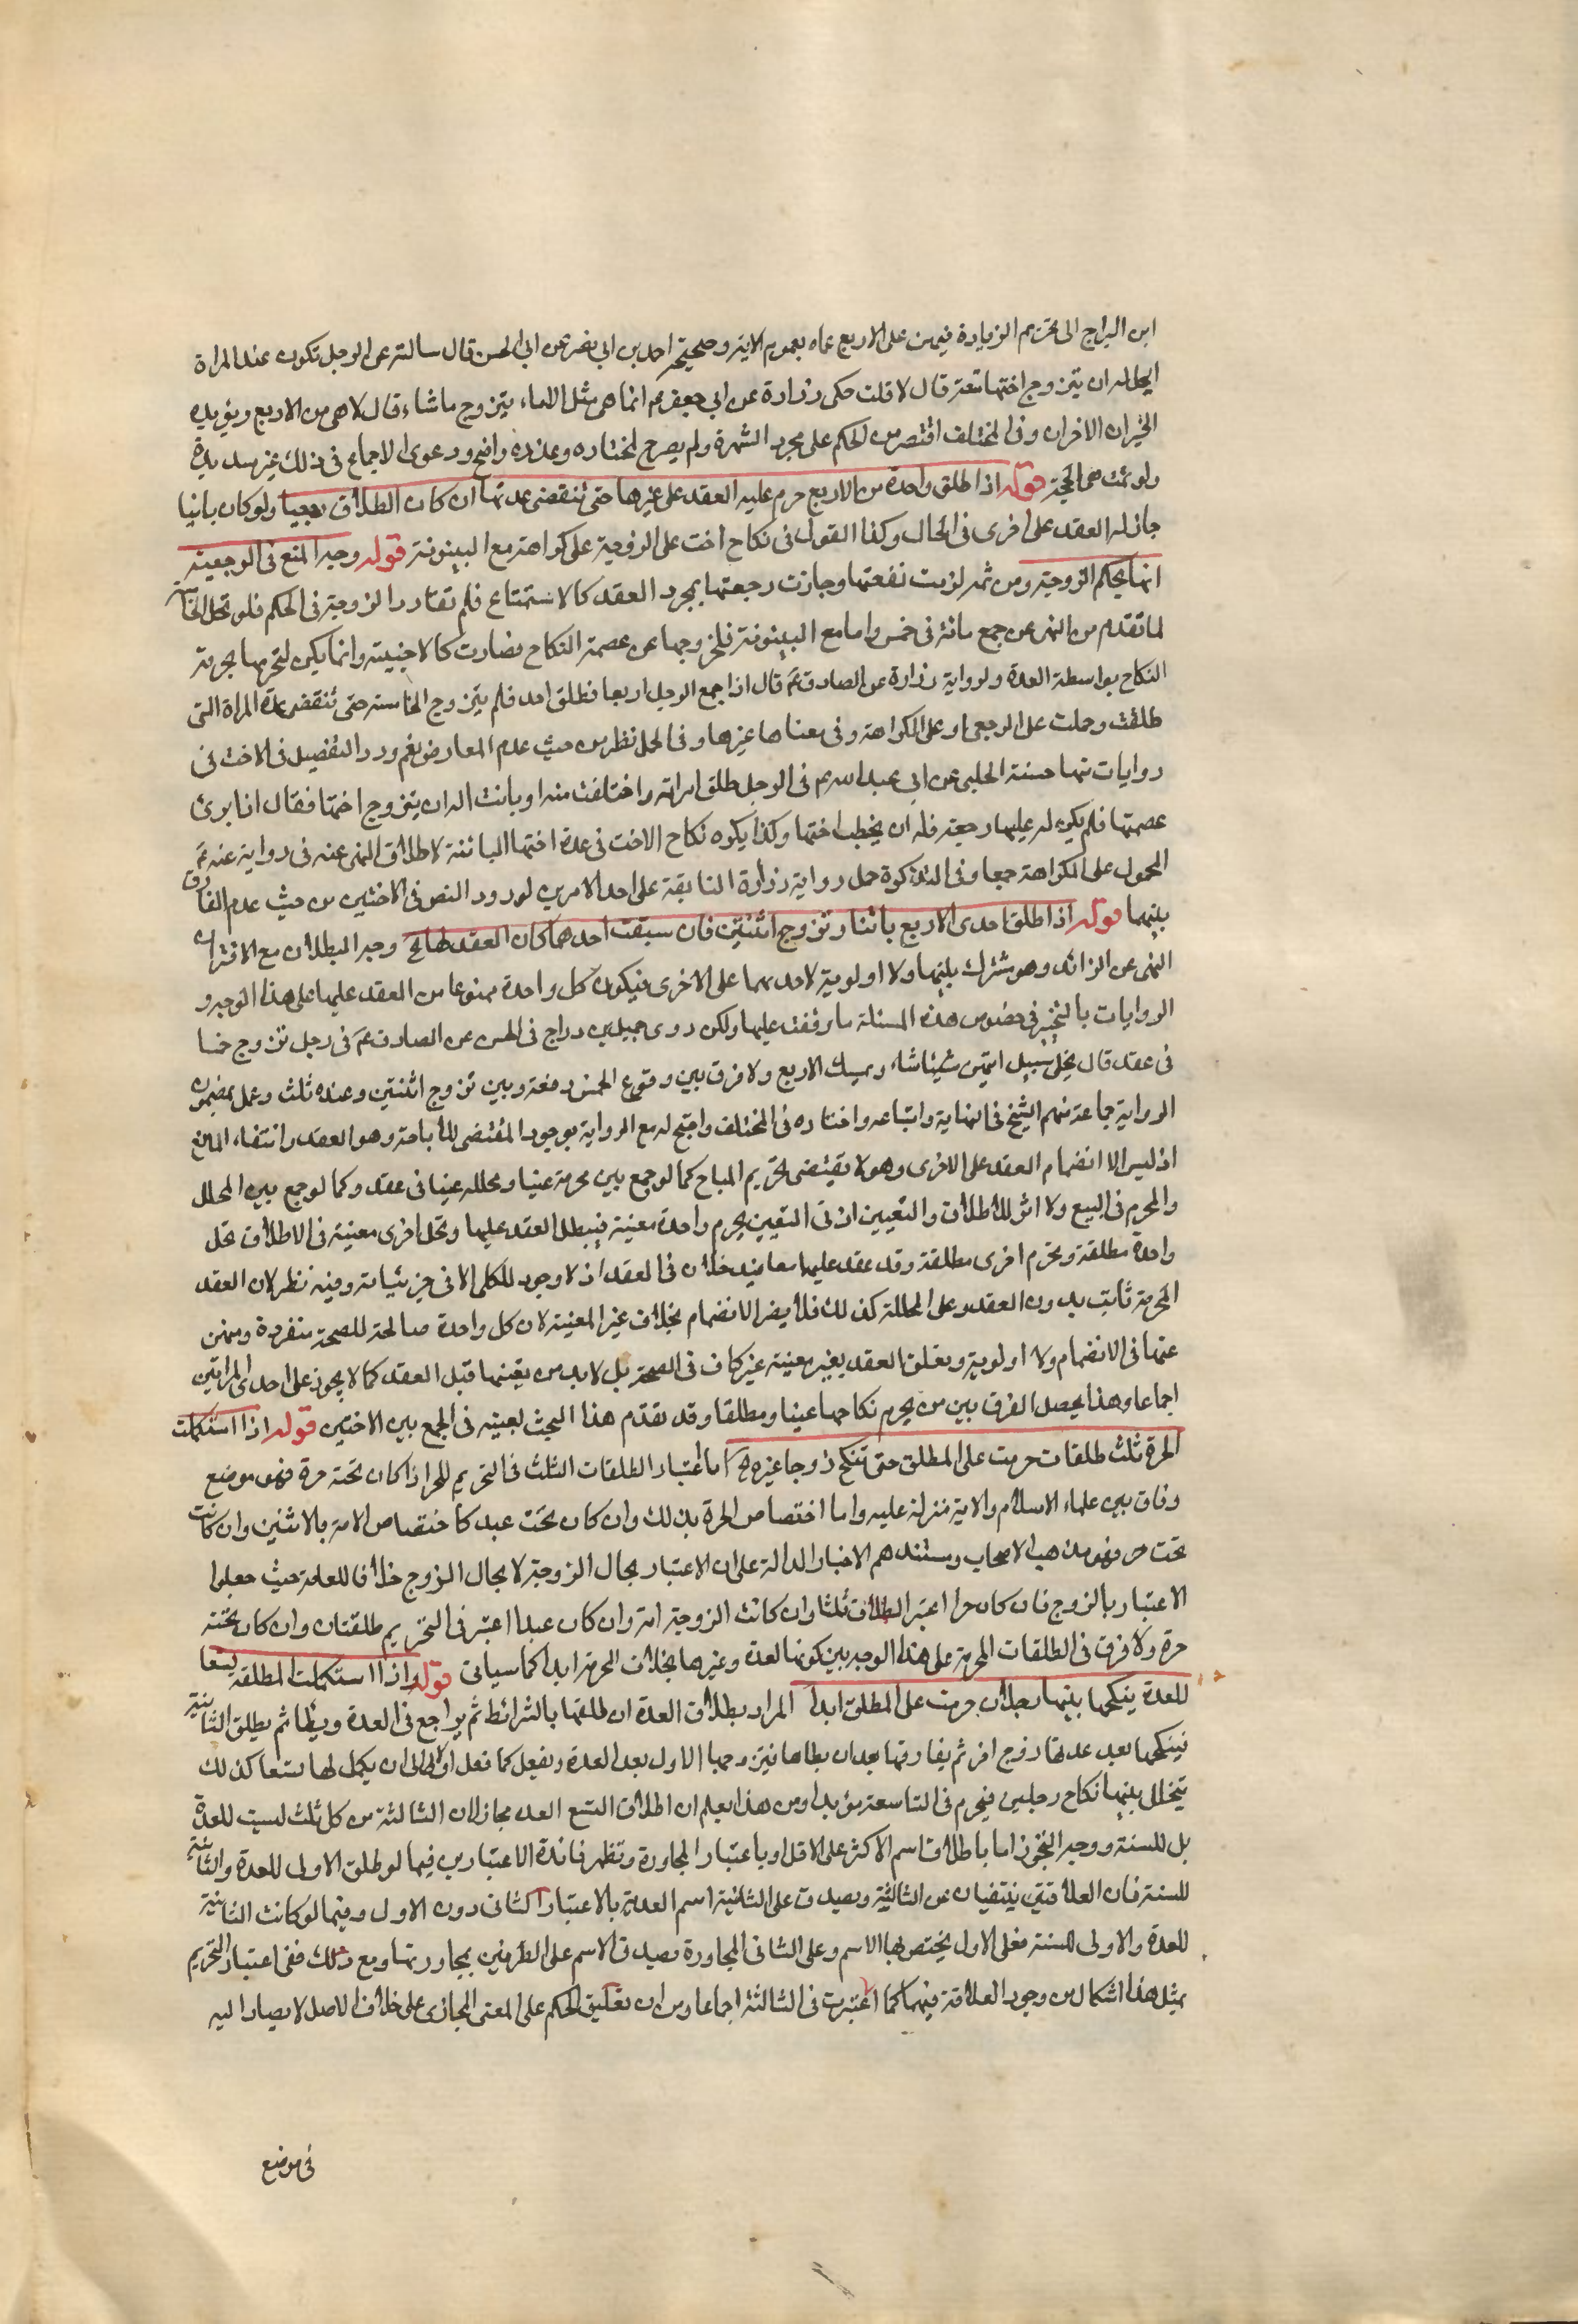 ابن البراج الى تحريم الزيادة فيهن على الاربع عملا بعموم الاية وصحيحة احمد بن ابي نصر عن ابي الحسن قال سالته عن الرجل تكون عنده المراة
ايحل له ان يتزوج اختها متعة قال لا قلت حكى زرارة عن ابي جعفر عم انما هى مثل الاماء يتزوج ما شاء قال لا هى من الاربع ويؤيده
الخبران الاخران وفى المختلف اقتصر من الحكم على مجرد الشهرة ولم يصرح بمختاره وعذره واضح ودعوى الاجماع فى ذلك غير سديدة
ولو تمت هى الحجة قوله اذا طلق واحدة من الاربع حرم عليه العقد على غيرها حتى تنقضى عدتها ان كان الطلاق رجعيا ولو كان باينا
جاز له العقد على اخرى فى الحال وكذا القول فى نكاح اخت على الزوجية على كراهة مع البينونة قوله وجه المنع فى الرجعية
انها بحكم الزوجية ومن ثم لزمت نفقتها وجازت رجعتها بمجرد العقد كالاستمتاع فلم تفارق الزوجية فى الحكم فلو تحل الخامسة
لما تقدم من النهى عن جمع مائه فى خمس واما مع البينونة فلخروجها عن عصمة النكاح فصارت كالاجنبية وانما يكره لتحريمها بحرمة
النكاح بواسطة العدة ولرواية زرارة عن الصادق عم قال اذا جمع الرجل اربعا فطلق احد فلم يتزوج الخامسة حتى تنقضى عدة المراة التى
طلقت وحملت على الرجعى او على الكراهة وفى معناها غيرها وفى الحل نظر من حيث عدم المعارض نعم ورد التفصيل فى الاخت فى
روايات منها حسنة الحلبى عن ابى عبد الله عم فى الرجل طلق امراته واختلعت منه او بانت اله ان يتزوج اختها فقال اذا برئ
عصمتها فلم يكن له عليها رجعة فله ان يخطب اختها وكذا يكره نكاح الاخت فى عدة اختها البائنة لاطلاق النهى عنه فى رواية عنه عم
المحمول على الكراهة جمعا وفى التذكرة حمل رواية زرارة السابقة على احد الامرين لورود النص فى الاختين من حيث عدم الفارق
بينهما قوله اذا طلق احدى الاربع باتنا وتزوج اثنتين فان سبقت احدهما كان العقد لها الخ وجه البطلان مع الاقتران
النهى عن الزائد وهو مشترك بينهما ولا اولوية لاحدهما على الاخرى فيكون كل واحدة ممنوعا من العقد عليها على هذا الوجه و
الروايات بالتخيير فى خصوص هذه المسئلة ما وقفت عليها ولكن روى جميل بن دراج فى الحسن عن الصادق عم فى رجل تزوج خمسا
فى عقد قال يخلى سبيل ايتهن شاء ويمسك الاربع ولا فرق بين وقوع الخمس دفعة وبين تزوج اثنتين وعنده ثلث وعمل بمضمون
الرواية جماعة منهم الشيخ فى النهاية واتباعه واختاره فى المختلف واحتج له مع الرواية بوجود المقتضى للاباحة وهو العقد وانتفاء المانع
اذ ليس الا انضمام العقد على الاخرى وهو لا يقتضى تحريم المباح كما لو جمع بين محرمة عينا ومحللة عينا فى عقد وكما لو جمع بين المحلل
والمحرم فى البيع ولا اثر للاطلاق والتعيين اذ فى التعيين يحرم واحدة معينة فيبطل العقد عليها وتحل اخرى معينة فى الاطلاق تحل
واحدة مطلقة وتحرم اخرى مطلقة وقد عقد عليهما معا فيدخلان فى العقد اذ لا وجود للكلى الا فى جزئياته وفيه نظر لان العقد
المحرمة ثابت بدون العقد وعلى المحللة كذلك فلا يضر الانضمام بخلاف غير المعينة لان كل واحدة صالحة للصحة منفردة ومنهى
عنها فى الانضمام ولا اولوية وتعلق العقد بغير معينة غير كاف فى الصحة بل لابد من تعينها قبل العقد كما لا يجوز على احدى المراتين
اجماعا وهذا يحصل الفرق بين من يحرم نكاحها عينا ومطلقا وقد تقدم هذا البحث بعينه فى الجمع بين الاختين قوله اذا استكملت
الحرة ثلث طلقات حرمت على المطلق حتى تنكح زوجا غيره الخ اما اعتبار الطلقات الثلث فى التحريم للحر اذا كان تحته حرة فهو موضع
وفاق بين علماء الاسلام والاية منزلة عليه واما اختصاص الحرة بذلك وان كان تحت عبد كاختصاص الامة بالاثنين وان كانت
تحت حر فهو مذهب الاصحاب ومستندهم الاخبار الدالة على ان الاعتبار بحال الزوجة لا بحال الزوج خلافا للعامة حيث جعلوا
الاعتبار بالزوج فان كان حرا اعتبر الطلاق ثلثا وان كانت الزوجة امة وان كان عبدا اعتبر فى التحريم طلقتان وان كان تحته
حرة ولا فرق فى الطلقات المحرمة على هذا الوجه بين كونها للعدة وغيرها بخلاف المحرمة ابدا كما سياتى قوله اذا استكملت المطلقة تسعا
للعدة ينكحها بينها رجلان حرمت على المطلق ابدا المراد بطلاق العدة ان طلقها بالشرائط ثم يراجع فى العدة ويطا ثم يطلق الثانية
فينكحها بعد عدتها زوج اخر ثم يفارقها بعد ان يطاها فيتزوجها الاول بعد العدة ويفعل كما فعل اولا الى ان يكمل لها تسعا كذلك
يتخلل بينها نكاح رجلين فيحرم فى التاسعة مؤبدا ومن هذا يعلم ان اطلاق التسع العدد مجاز لان الثالثة من كل ثلث ليست للعدة
بل للسنة ووجه التجوز اما باطلاق اسم الاكثر على الاقل او باعتبار المجاورة وتظهر فائدة الاعتبارين فيما لو طلق الاولى للعدة والثانية
للسنة فان العلاقتين ينتفيان عن الثالثة ويصدق على الثانية اسم العدية بالاعتبار الثانى دون الاول وفيما لو كانت الثانية
للعدة والاولى للسنة فعلى الاول يختص بها الاسم وعلى الثانى المجاورة يصدق الاسم على الطرفين بمجاورتها ومع ذلك ففى اعتبار التحريم
بمثل هذا اشكال من وجود العلاقة فيهما كما اعتبرت فى الثالثة اجماعا ومن ان تعليق الحكم على المعنى المجازى على خلاف الاصل لا يصار اليه
فى موضع